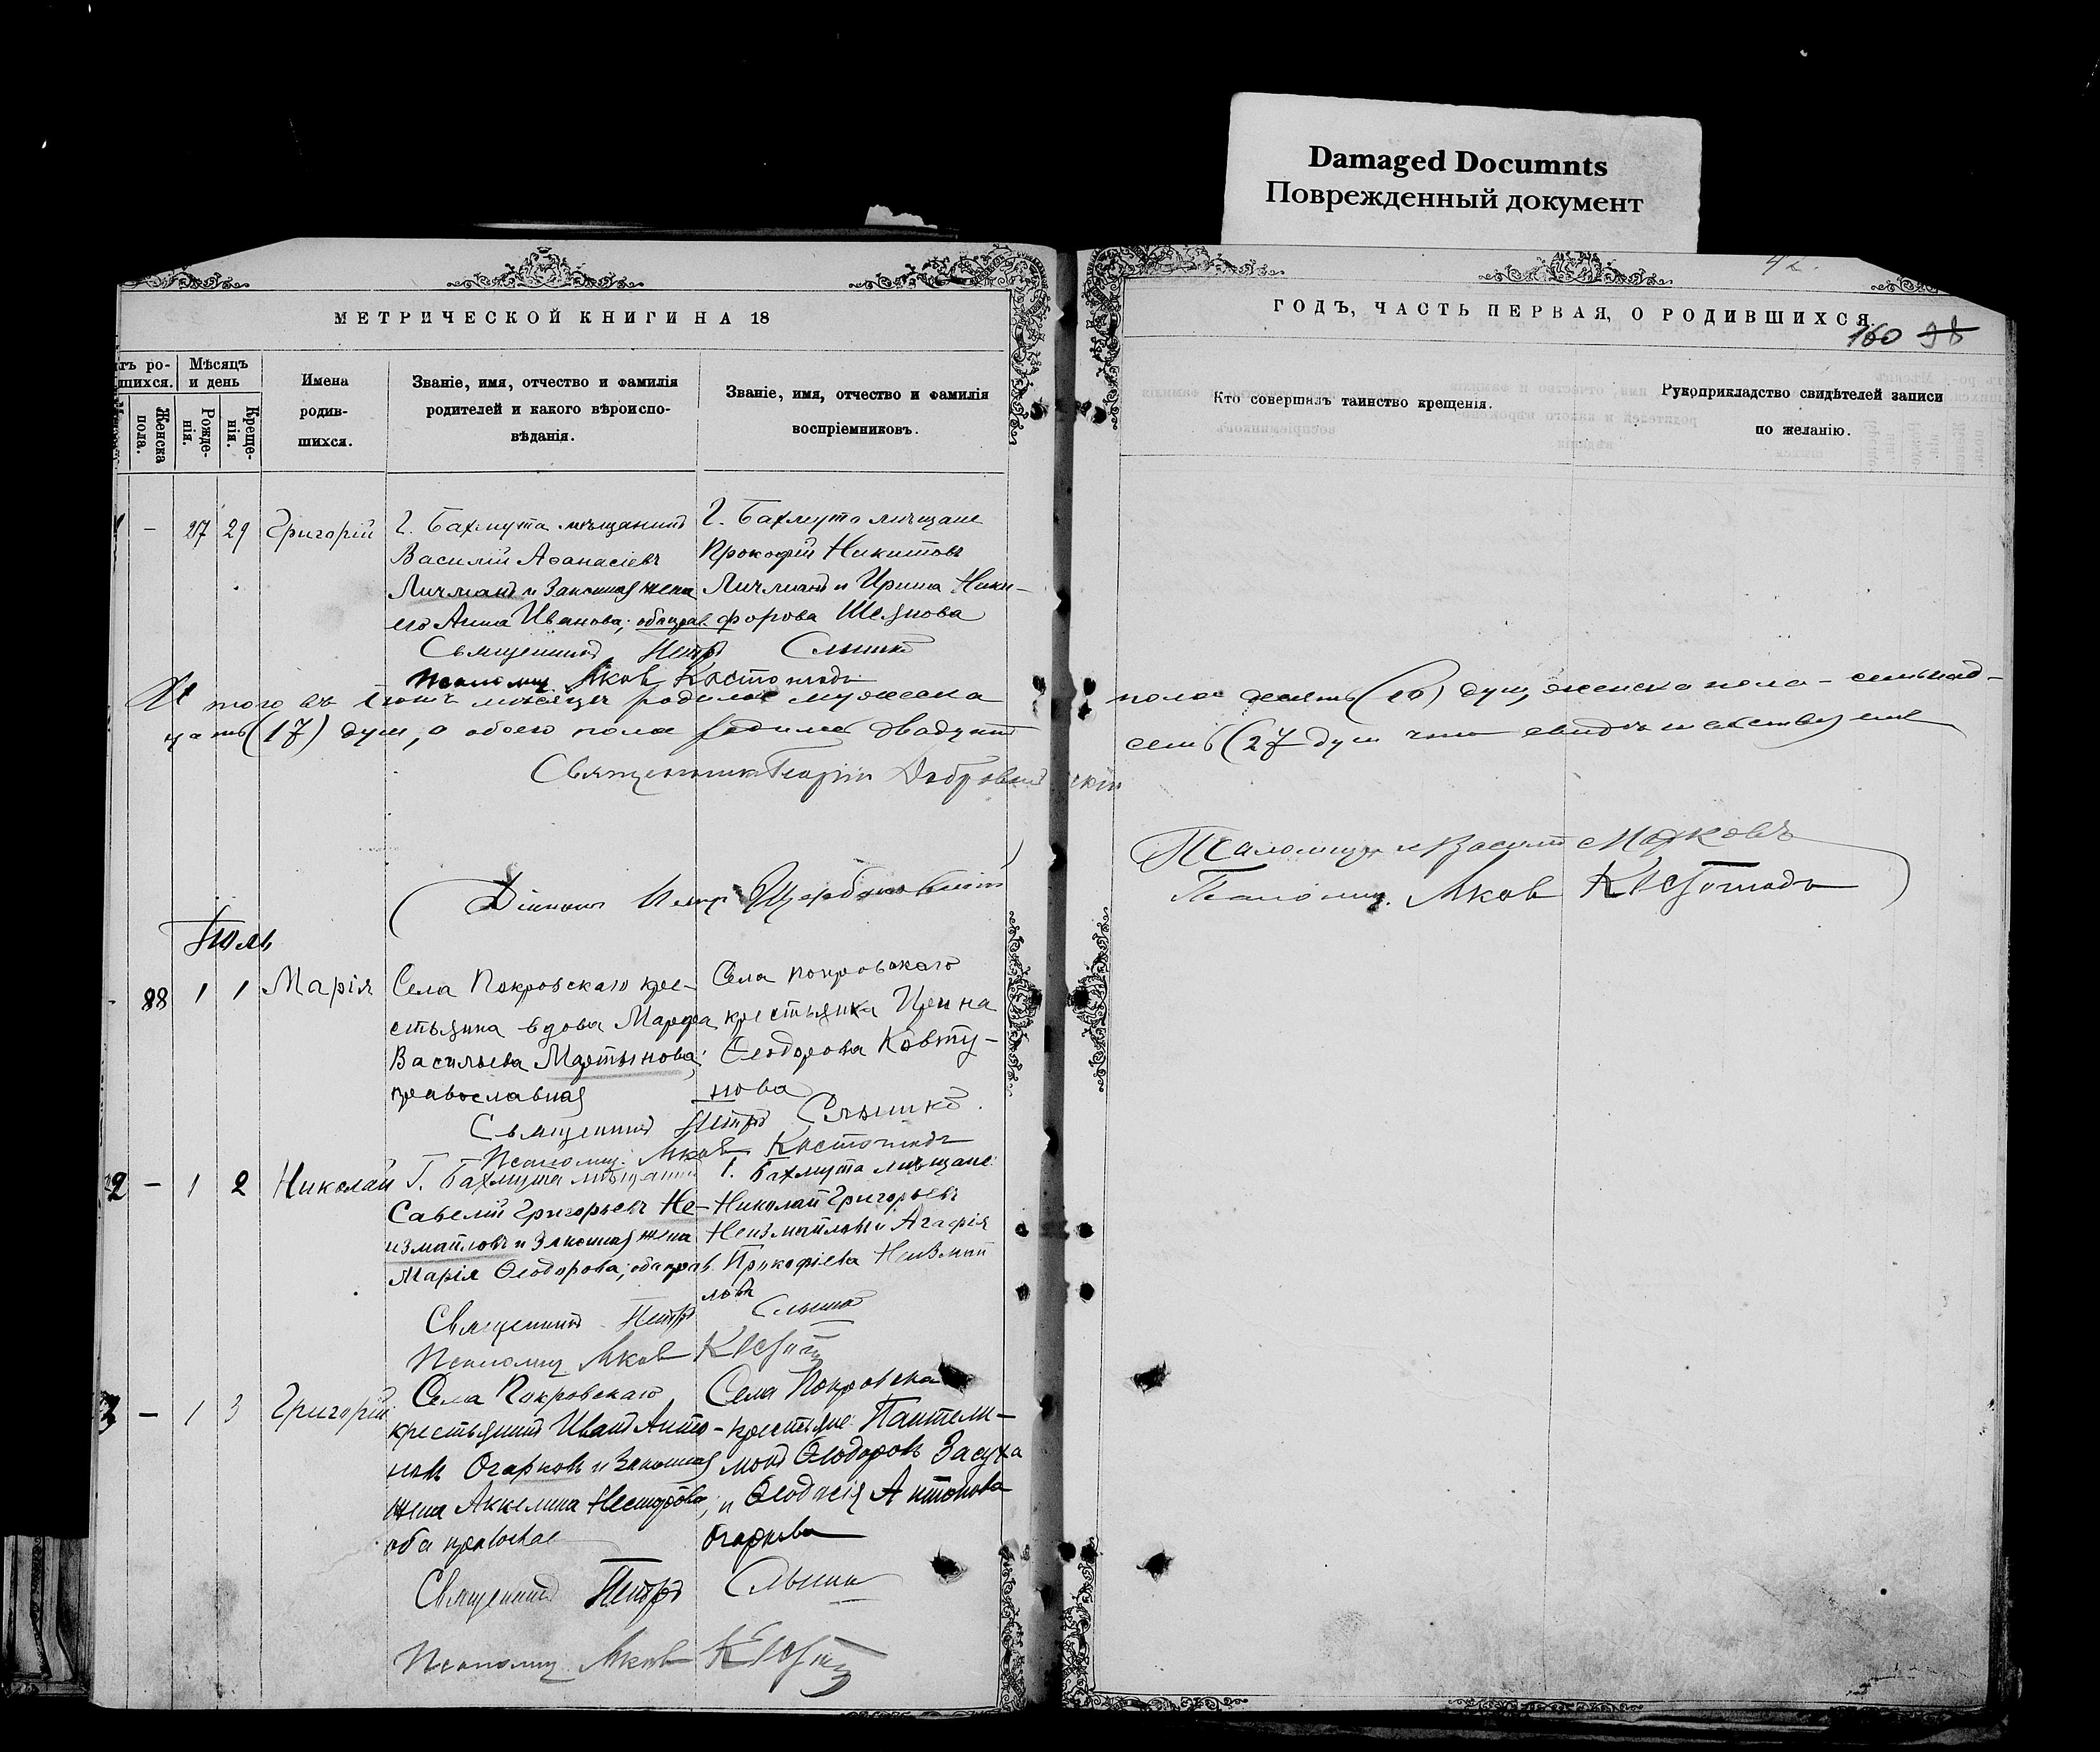 Damaged Documnts
Поврежденный документ
МЕТРИЧЕСКОЙ КНИГИ НА 18
ГОДЪ, ЧАСТЬ ПЕРВАЯ, О РОДИВШИХСЯ
42.
160 98
Мѣсяцъ и день
Женска пола.
Рожде-нія.
Креще-нія.
Имена родив-шихся.
Званіе, имя, отчество и фамилія
родителей и какого вѣроиспо-
вѣданія.
Званіе, имя, отчество и фамилія
воспріемниковъ.
Кто совершалъ таинство крещенія.
Рукоприкладство свидѣтелей записи
по желанію.
- 27 29 Григорій
Г. Бахмута мѣщанинъ
Василій Аѳанасіевъ
Личманъ и законная жена
его Анна Иванова; оба прав.
Г. Бахмута мѣщане
Прокофій Никитовъ
Личманъ и Ирина Ники-
форова Шеянова
Священникъ Петръ
Псаломщ. Яковъ
того въ Іюнѣ мѣсяцѣ родилось мужеска
пола десять (10) душ, женска пола - семьнад-
цать (17) душ, а обоего пола родилось двадцать
семь (27 душ что свидѣтельствуем
Священникъ Георгій
Діаконъ Петръ
Псаломщикъ Василій
Псаломщ. Яковъ
Іюль
- 88 1 1 Марія
Села Покровскаго кре-
стьянка вдова Марфа
Васильева Мартынова;
православная
Села Покровскаго
крестьянка Ирина
Ѳеодорова Ковту-
нова
Священникъ Петръ
Псаломщ. Яковъ
2 - 1 2 Николай
Г. Бахмута мѣщанинъ
Савелій Григорьевъ Не-
измайловъ и законная жена
Марія Ѳеодорова; оба прав.
Г. Бахмута мѣщане:
Николай Григорьевъ
Неизмайловъ и Агафія
Прокофіева Неизмай
лова
Священникъ Петръ
Псаломщ Яковъ
3 - 1 3 Григорій
Села Покровскаго
крестьянинъ Иванъ Анто-
новъ Огарковъ и законная
жена Аккелина Несторова;
оба православ
Села Покровска
крестьяне: Пантели-
монъ Ѳеодоровъ Засуха
и Ѳеодосія Антонова
Огаркова
Священникъ Петръ
Псаломщ. Яковъ